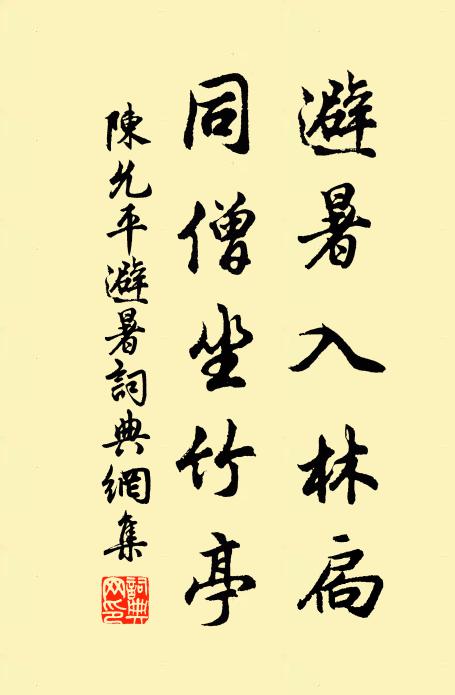 避暑入林扃
同僧坐竹亭
陳允平避暑詞典網集
詞典
网印